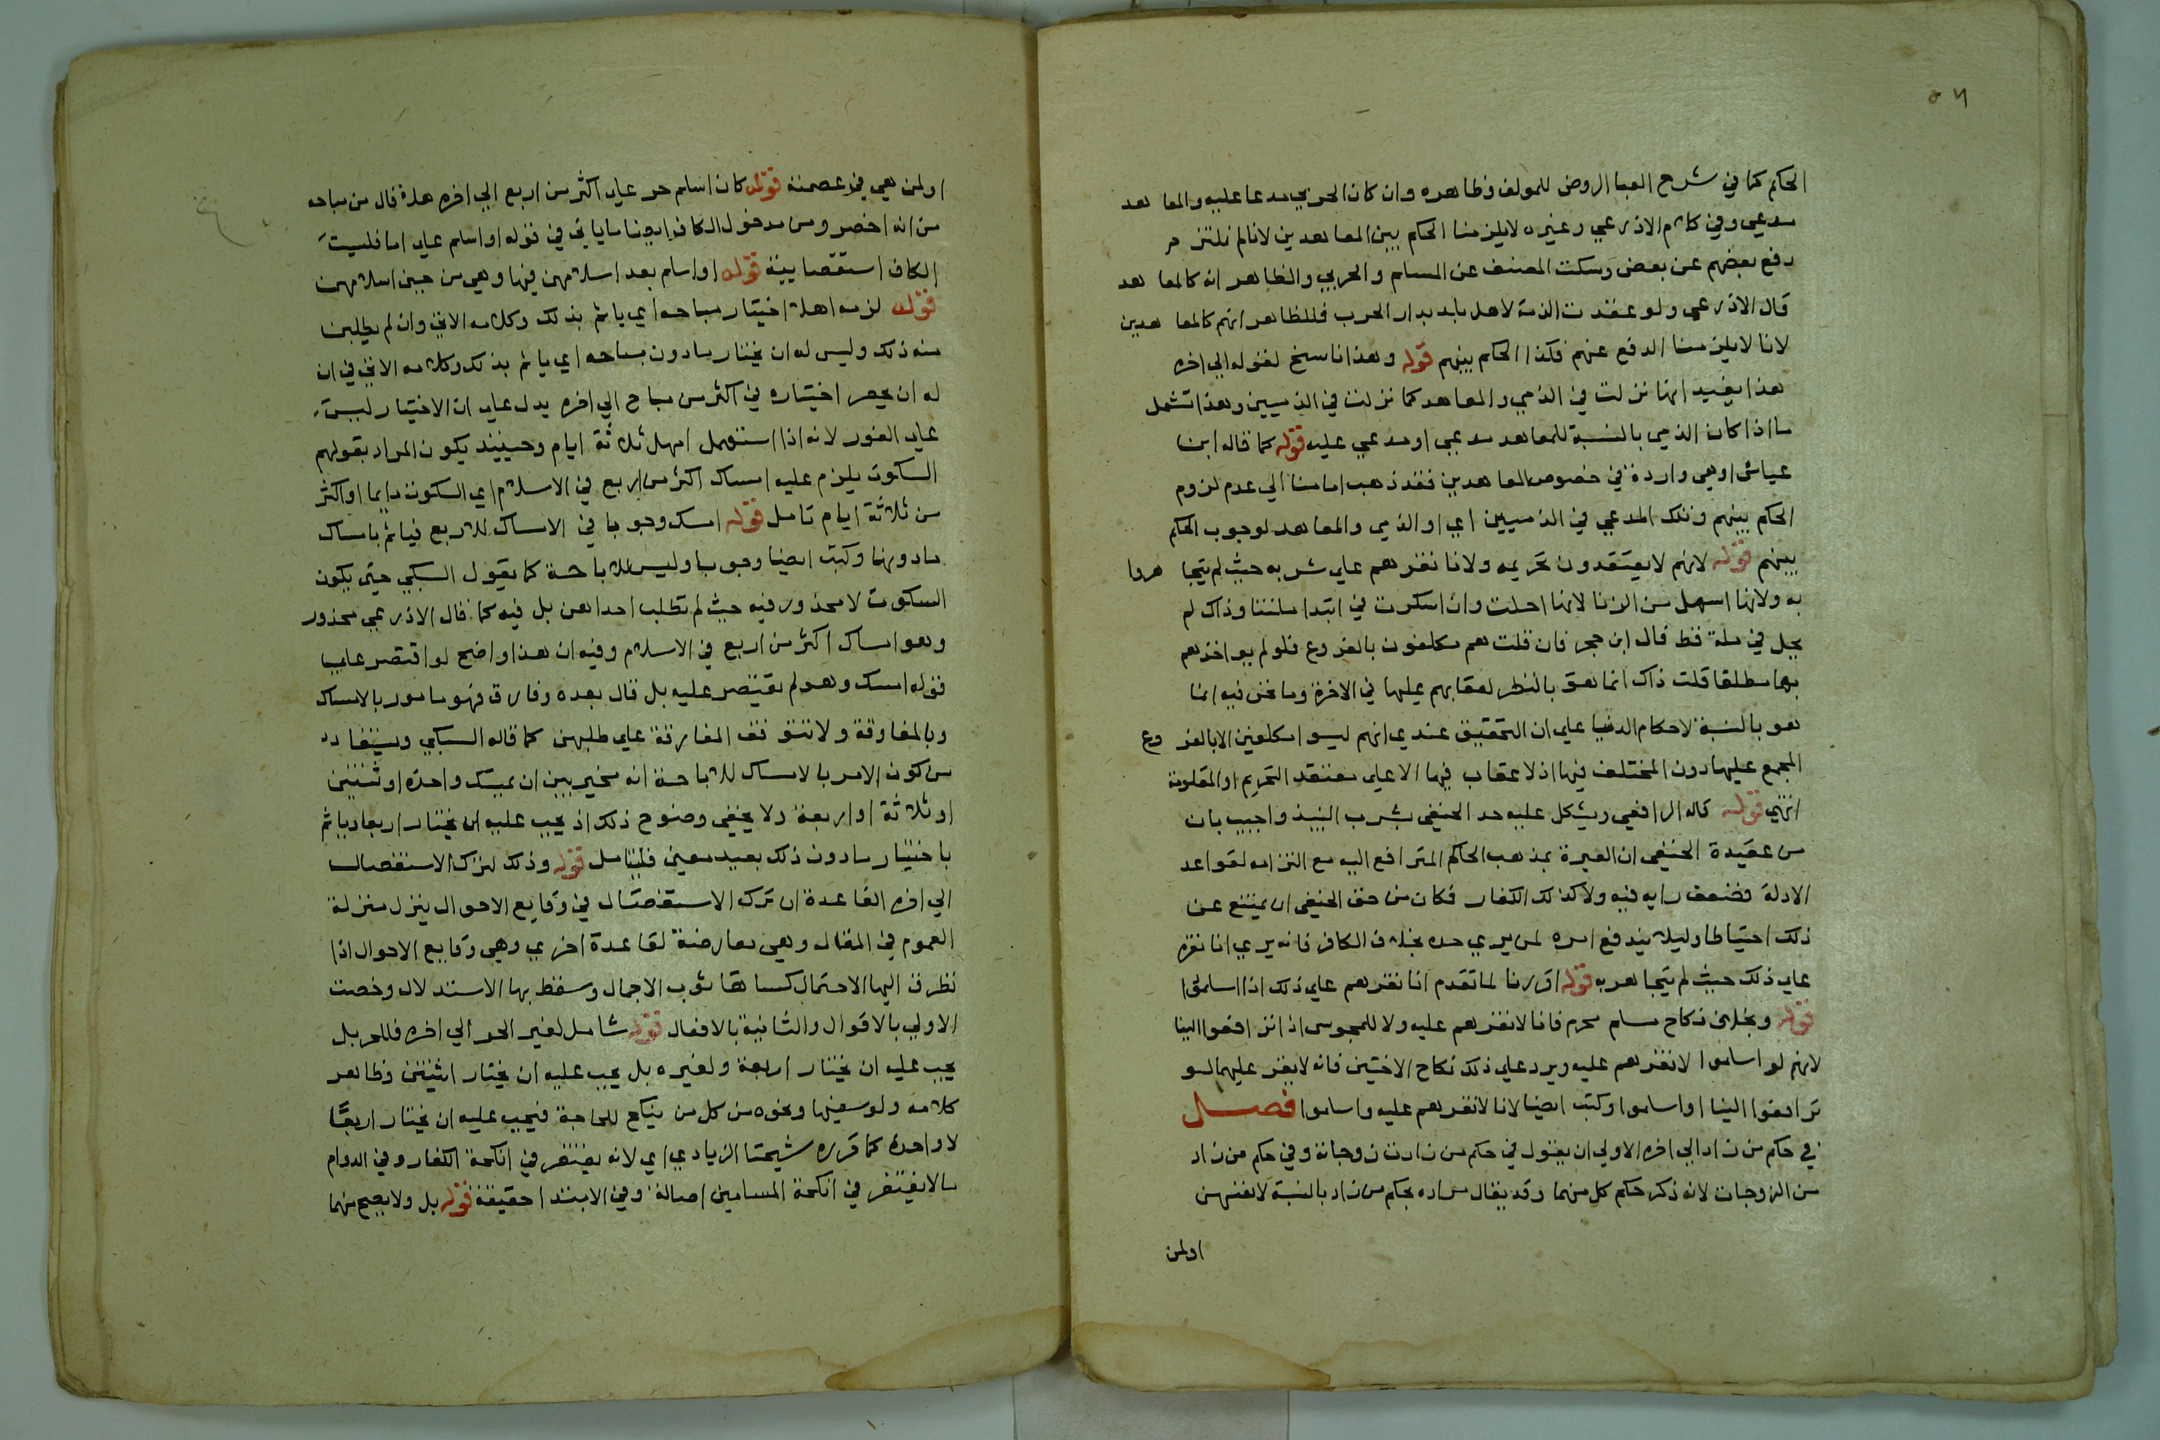 ٥٦
الحكم كما في شرح العباب الروض للمولف وظاهره وان كان الحربي مدعا عليه والمعاهد
مدعي وفي كلام الاذرعي وغيره لا يلزمنا الحكم بين المعاهدين لانا لم نلتزم
دفع بعضهم عن بعض وسكت المصنف عن المسلم والحربي والظاهر انه كالمعاهد
قال الاذرعي ولو عقدت الذمة لاهل بلد بدار الحرب فالظاهر انهم كالمعاهدين
لانا لا يلزمنا الدفع عنهم فكذا الحكم بينهم قوله وهذا ناسخ لقوله الي اخره
هذا يفيد انها نزلت في الذمي والمعاهد كما نزلت في الذميين وهذا تشمل
ما اذا كان الذمي بالنسبة للمعاهد مدعي او مدعي عليه قوله كما قاله ابن
عباس او هي واردة في خصوص المعاهدين فقد ذهب امامنا الي عدم لزوم
الحكم بينهم وتلك المدعي في الذميين اي او الذمي والمعاهد لوجوب الحكم
بينهم قوله لانهم لا يعتقدون تحريمه ولانا نقرهم علي شربه حيث لم يتجاهروا
به ولانها اسهل من الزنا لانها احلت وان اسكرت في ابتدا ملتنا وذاك لم
يحل في ملة قط قال ابن حجر فان قلت هم مكلفون بالفروع فلو لم يواخذهم
بها مطلقا قلت ذاك انما هو بالنظر لعقابهم عليها في الاخرة وما نحن فيه انما
هو بالنسبة لاحكام الدنيا علي ان التحقيق عندي انهم ليسوا مكلفين الا بالفروع
المجمع عليها دون المختلف فيها اذ لا عقاب فيها الا علي معتقد التحريم او المقلونه
انتهي قوله قاله الرافعي ويشكل عليه حد الحنفي بشرب النبيذ واجيب بان
من عقيدة الحنفي ان العبرة بمذهب الحاكم المترافع اليه مع التزامه لقواعد
الادلة فضعف رايه فيه ولا كذلك الكفار فكان من حق الحنفي ان يمتنع عن
ذلك احتياطا وليلا يندفع امره لمن يري حده بخلاف الكافر فانه يري انا نقره
علي ذلك حيث لم يتجاهر به قوله اقررنا لما تقدم انا نقرهم علي ذلك اذا اسلموا
قوله وبخلاف نكاح مسلم محرم فانا لا نقرهم عليه ولا للمجوسي اذا ترافعوا الينا
لانهم لو اسلموا لا نقرهم عليه ويرد علي ذلك نكاح الاختين فانه لا يقر عليهما لو
ترافعوا الينا او اسلموا وكتب ايضا لانا لا نقرهم عليه واسلموا فصل
في حكم من زاد الي اخره الاولي ان يقول في حكم من زادت زوجاته وفي حكم من زاد
من الزوجات لانه ذكر حكم كل منهما وقد يقال مراده بحكم من زاد بالنسبة لانفسهن
اولمن
اولمن هي في عصمته قوله كان اسلم حر علي اكثر من اربع الي اخره هلا قال من مباحه
من انه اخصر ومن مدخول الكاف ايضا ما ياتي في قوله او اسلم علي اما فليست
الكاف استقصايية قوله او اسلم بعد اسلامهن فيها وهي من حين اسلامهن
قوله لزمه اهلا اختيار مباحه اي ياثم بذلك وكلامه الاتي وان لم يطلبن
منه ذلك وليس له ان يختار ما دون مباحه اي ياثم بذلك وكلامه الاتي في ان
له ان يحصر اختياره في اكثر من مباح الي اخره يدل علي ان الاختيار ليس
علي الفور لانه اذا استمهل امهل ثلاثة ايام وحينيذ يكون المراد بقولهم
السكوت يلزم عليه امساك اكثر من اربع في الاسلام اي السكوت دايما او اكثر
من ثلاثة ايام تامل قوله امسك وجوبا في الامساك للاربع فياثم بامساك
ما دونها وكتب ايضا وجوبا وليس للاباحة كما يقول السبكي حتي يكون
السكوت لا محذور فيه حيث لم تطلب احداهن بل فيه كما قال الاذرعي محذور
وهو امساك اكثر من اربع في الاسلام وفيه ان هذا واضح لو اقتصر علي
قوله امسك وهو لم يقتصر عليه بل قال بعده وفارق فهو مامور بالامساك
وبالمفارقة ولا تتوقف المفارقة علي طلبهن كما قاله السبكي ويستفاد
من كون الامر بالامساك للاباحة انه مخير بين ان يمسك واحدة او ثنتين
او ثلاثة او اربعة ولا يخفي وضوح ذلك اذ يجب عليه ان يختار اربعا وياثم
باختيار ما دون ذلك بعيد معين فليتامل قوله وذلك لترك الاستفصال
الي اخره القاعدة ان ترك الاستفصال في وقايع الاحوال ينزل منزلة
العموم في المقال وهي معارضة لقاعدة اخري وهي وقايع الاحوال اذا
تطرق اليها الاحتمال كساها ثوب الاجمال وسقط بها الاستدلال وخصت
الاولي بالاقوال والثانية بالافعال قوله شامل لغير الحر الي اخره فللحر بل
يجب عليه ان يختار اربعة ولغيره بل يجب عليه ان يختار اثنتين وظاهر
كلامه ولو سفيها ونحوه من كل من ينكح للحاجة فيجب عليه ان يختار اربعًا
لا واحدة كما قرره شيخنا الزيادي اي لانه يغتفر في انكحة الكفار وفي الدوام
ما لا يغتفر في انكحة المسلمين اصالة وفي الابتدا حقيقة قوله بل ولا يصح منهما